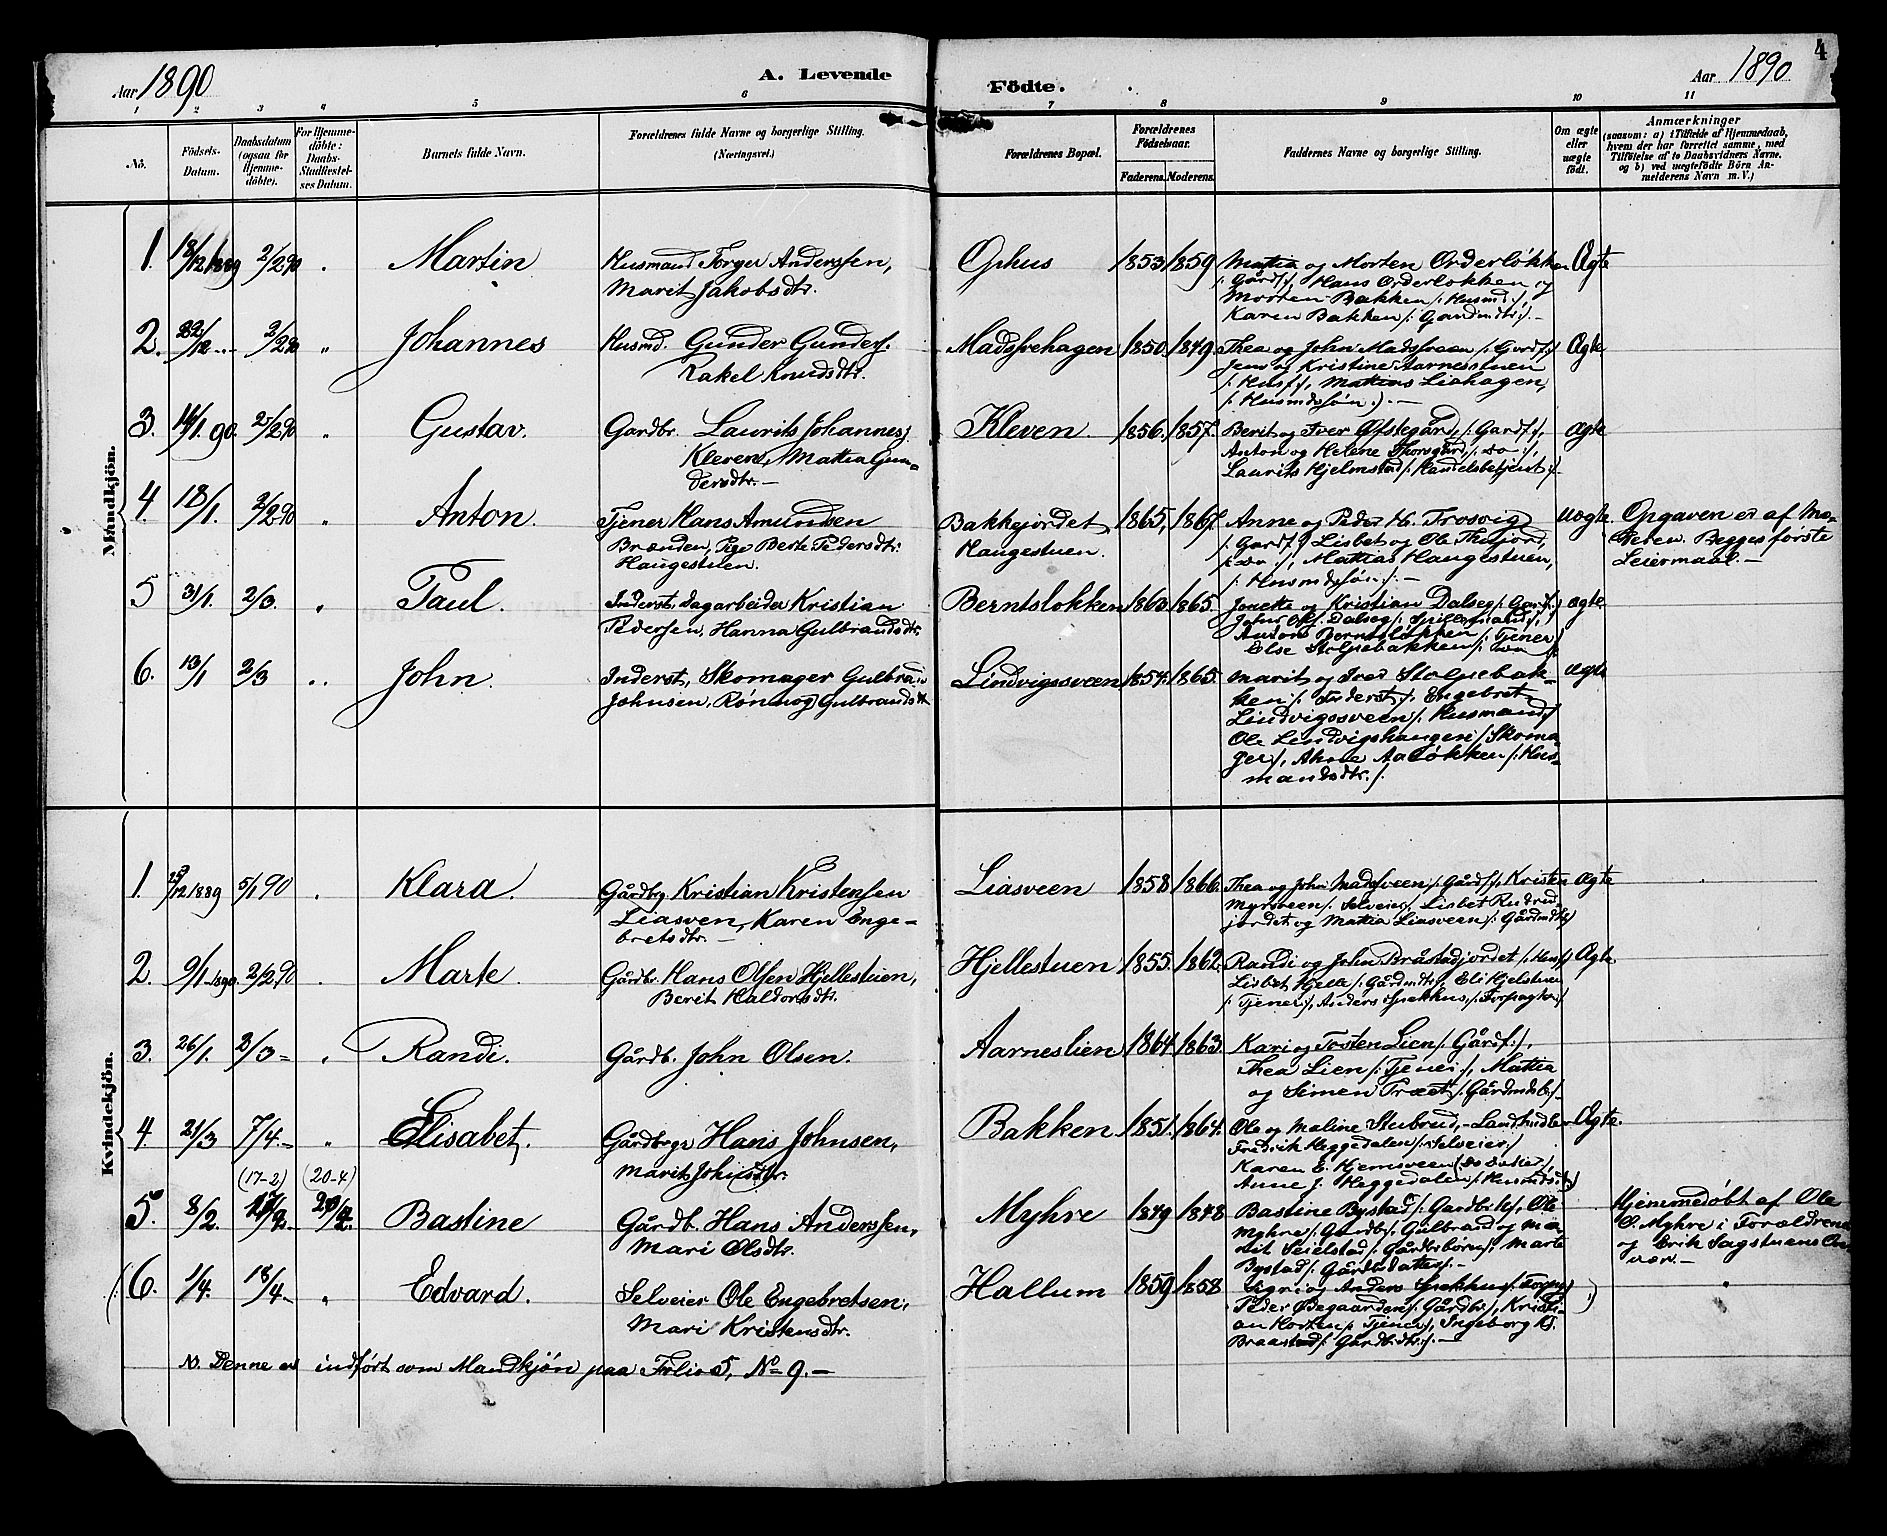 Aar 1890
A. Levende
Födte.
Aar 1890
4
1 2 3 4 5 6 7 8 9 10 11
No.
Födsels-Datum.
Daabsdatum (ogsaa for Hjemme-döbte).
For Hjemme-döbte: Daabs-Stadfæstel-ses Datum.
Barnets fulde Navn.
Forældrenes fulde Navne og borgerlige Stilling.
(Næringsvei.)
Forældrenes Bopæl.
Forældrenes Födselsaar.
Faderens. Moderens.
Faddernes Navne og borgerlige Stilling.
Om ægte eller uægte födt.
Anmærkninger
(saasom: a) i Tilfælde af Hjemmedaab,
hvem der har forrettet samme, med
Tilföielse af to Daabsvidners Navne.
og b) ved uægtefödte Börn An-
melderens Navn m. V.)
Mandkjön.
1. 18/12 1889 2/2 90 Martin
Husmand Torger Anderssen,
Marit Jakobsdtr.
Ophus 1853 1859
Mathia og Morten Orderløkken
/: Gårdf:/, Hans Orderløkken og
Morten Bakken /: Husmd:/,
Karen Bakken /: Gardmdtr:/. –
Ægte
2. 22/12 .. 2/2 90 " Johannes
Husmd. Gunder Gunders.
Rakel Knudsdtr.
Madssvehagen 1850. 1849.
Thea og John Madssveen /: Gardf:/
Jens og Kristine Aarnesstuen
/: Husf:/, Mathias Liehagen,
/: Husmdssøn:). –
Ægte
3. 14/1. 90. 2/2 90 " Gustav.
Gardbr. Laurits Johannes.
Kleven, Mathea Gun-
dersdtr. –
Kleven. 1856. 1857.
Berit og Iver Øfstegård, /: Gardf:/,
Anton og Helene Thorsgård, /: do:/,
Laurits Hjelmstad /: Handelsbetjent:/
Ægte
4. 18/1. 2/2 90 " Anton.
Tjener Hans Amundsen
Brænden, Pige Berte Pedersdtr.
Haugestuen.
Bakkejordet, 1865, 1867.
Haugestuen.
Anne og Peder H. Frosvig
/: Gardf:/ Lisbet og Ole Thujord
/: do:/, Mathias Haugestuen,
/: Husmdssøn:/. –
Uægte.
Opgaven er af Mo-
deren. Begges første
Leiermaal. –
5 31/1. 2/3. " Paul.
Inderst, Dagarbeider Kristian
Pedersen, Hanna Gulbrandsdtr.
Berntsløkken 1863. 1865.
Jonette og Kristian Dalseg /: Gardf:/
Johs. Dalseg /: Spillemand:/,
Anton Berntsløkken /: Tjener/
Else Stolpebakken /: do:/
Ægte.
6. 13/1 2/3 .. John.
Inderst, Skomager Gulbrand
Johnsen, Rønnog Gulbrandsdtr
Lindvigssveen 1854. 1865.
Marit og Iver Stolpebak-
ken /: Inderst:/. Engebret
Lindvigssveen /: Husmand:/
Ole Lindvigshaugen /: Skoma-
ger:/, Anne Aaløkken /: Hus-
mandsdtr. /.
Ægte
Kvindekjön.
1. 29/12 1889 5/1 90 Klara.
Gårdbr. Kristian Kristensen
Liasven, Karen Enge-
bretsdtr. –
Liasveen 1858 1866.
Thea og John Madssveen /: Gårdf:/, Kristen
Myrsveen /: Selveier:/, Lisbet Rudrud-
jordet og Mathia Liasveen /: Gårdmdtr:/
Ægte
2. 9/1 1890 2/2 90 Marte.
Gårdbr. Hans Olsen Hjellestuen,
Berit Haldorsdtr.
Hjellestuen 1855. 1862.
Randi og John Bråstadjordet /: Husf:/
Lisbet Hjelle /: Gårdmdtr:/, Eli Hjelstuen
/: Tjener:/, Anders Spækhus, /: Forpagter:/
Ægte.
3. 26/1. 2/3 = " Randi.
Gårdb. John Olsen.
Aarneslien 1864. 1863.
Kari og Torsten Lien /: Gårdf:/,
Thea Lien /: Tjener:/, Mathia
og Simen Træet /: Gårdmdsb:/ –
4. 21/3 7/4. – " Elisabet.
Gårdbrgr Hans Johnsen,
Marit Johnsdtr.
Bakken 1851. 1864.
Ole og Maline Stubrud, – Landhndler
Fredrik Heggedalen /: Selveier:/
Karen E. Hjemsveen
Anne J. Heggedalen /: Husmdsdtr:/
Ægte.
(17-2) (20-4)
5. 8/2. 17/2. 20/4. Bastine
Gårdb. Hans Anderssen,
Mari Olsdtr.
Myhre 1849 1848
Bastine Bystad /: Gardbrk:/, Ole
Myhre /: Gardbr:/, Gulbrand og Ma-
rit Seielstad /: Gårdbrbörn:/, Marte
Bystad /: Gårdbdatter:/. –
Hjemmedøbt af Ole
O. Myhre i Forældrenes
og Erik Sagstuens Or-
vær. –
(6. 1/4. 18/4. – " Edvard.
Selveier Ole Engebretsen,
Mari Kristensdtr.
Hallum 1859 1858
Signi og Anders Spækhus /: Forpag:/
Peder Øvegaarden /: Gårdbr:/, Kristi-
an Horten /: Tjener:/, Ingeborg K.
Braastad /: Gårdb.dtr:/. –
") "
N. Denne er indført som Mandkjøn paa Folio 5, No 9. –